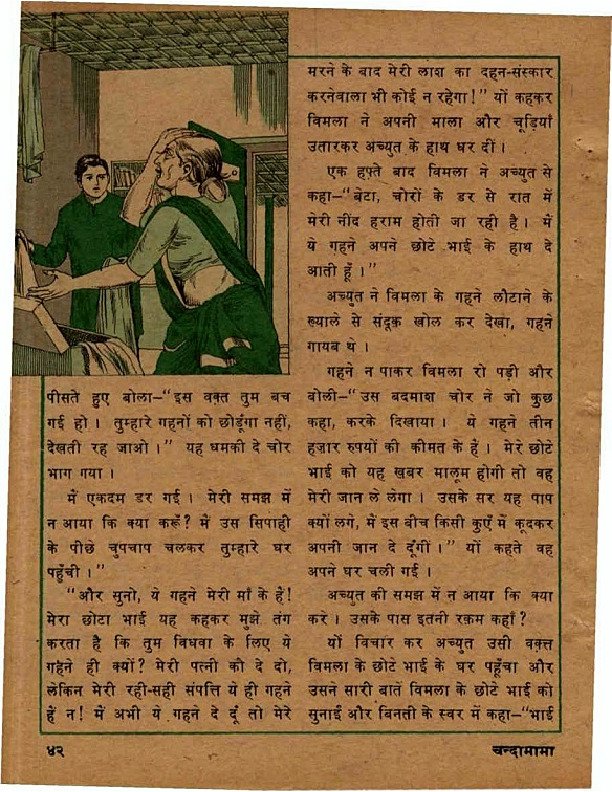 पीसते हुए बोला—"इस वक़्त तुम बच
गई हो। तुम्हारे गहनों को छोड़ूंगा नहीं,
देखती रह जाओ।" यह धमकी दे चोर
भाग गया।
मैं एकदम डर गई। मेरी समझ में
न आया कि क्या करूँ? मैं उस सिपाही
के पीछे चुपचाप चलकर तुम्हारे घर
पहुँची।"
"और सुनो, ये गहने मेरी माँ के हैं!
मेरा छोटा भाई यह कहकर मुझे तंग
करता है कि तुम विधवा के लिए ये
गहने ही क्यों? मेरी पत्नी को दे दो,
लेकिन मेरी रही-सही संपत्ति ये ही गहने
हैं न! मैं अभी ये गहने दे दूं तो मेरे
मरने के बाद मेरी लाश का दहन-संस्कार
करनेवाला भी कोई न रहेगा!" यों कहकर
विमला ने अपनी माला और चूड़ियाँ
उतारकर अच्युत के हाथ धर दीं।
एक हफ़्ते बाद विमला ने अच्युत से
कहा—"बेटा, चोरों के डर से रात में
मेरी नींद हराम होती जा रही है। मैं
ये गहने अपने छोटे भाई के हाथ दे
आती हूँ।"
अच्युत ने विमला के गहने लौटाने के
ख्याले से संदूक़ खोल कर देखा, गहने
गायब थे।
गहने न पाकर विमला रो पड़ी और
बोली—"उस बदमाश चोर ने जो कुछ
कहा, करके दिखाया। ये गहने तीन
हज़ार रुपयों की कीमत के हैं। मेरे छोटे
भाई को यह खबर मालूम होगी तो वह
मेरी जान ले लेगा। उसके सर यह पाप
क्यों लगे, मैं इस बीच किसी कुएँ में कूदकर
अपनी जान दे दूंगी।" यों कहते वह
अपने घर चली गई।
अच्युत की समझ में न आया कि क्या
करे। उसके पास इतनी रक़म कहाँ?
यों विचार कर अच्युत उसी वक़्त
विमला के छोटे भाई के घर पहुँचा और
उसने सारी बातें विमला के छोटे भाई को
सुनाईं और बिनती के स्वर में कहा—"भाई
४२
चन्दामामा